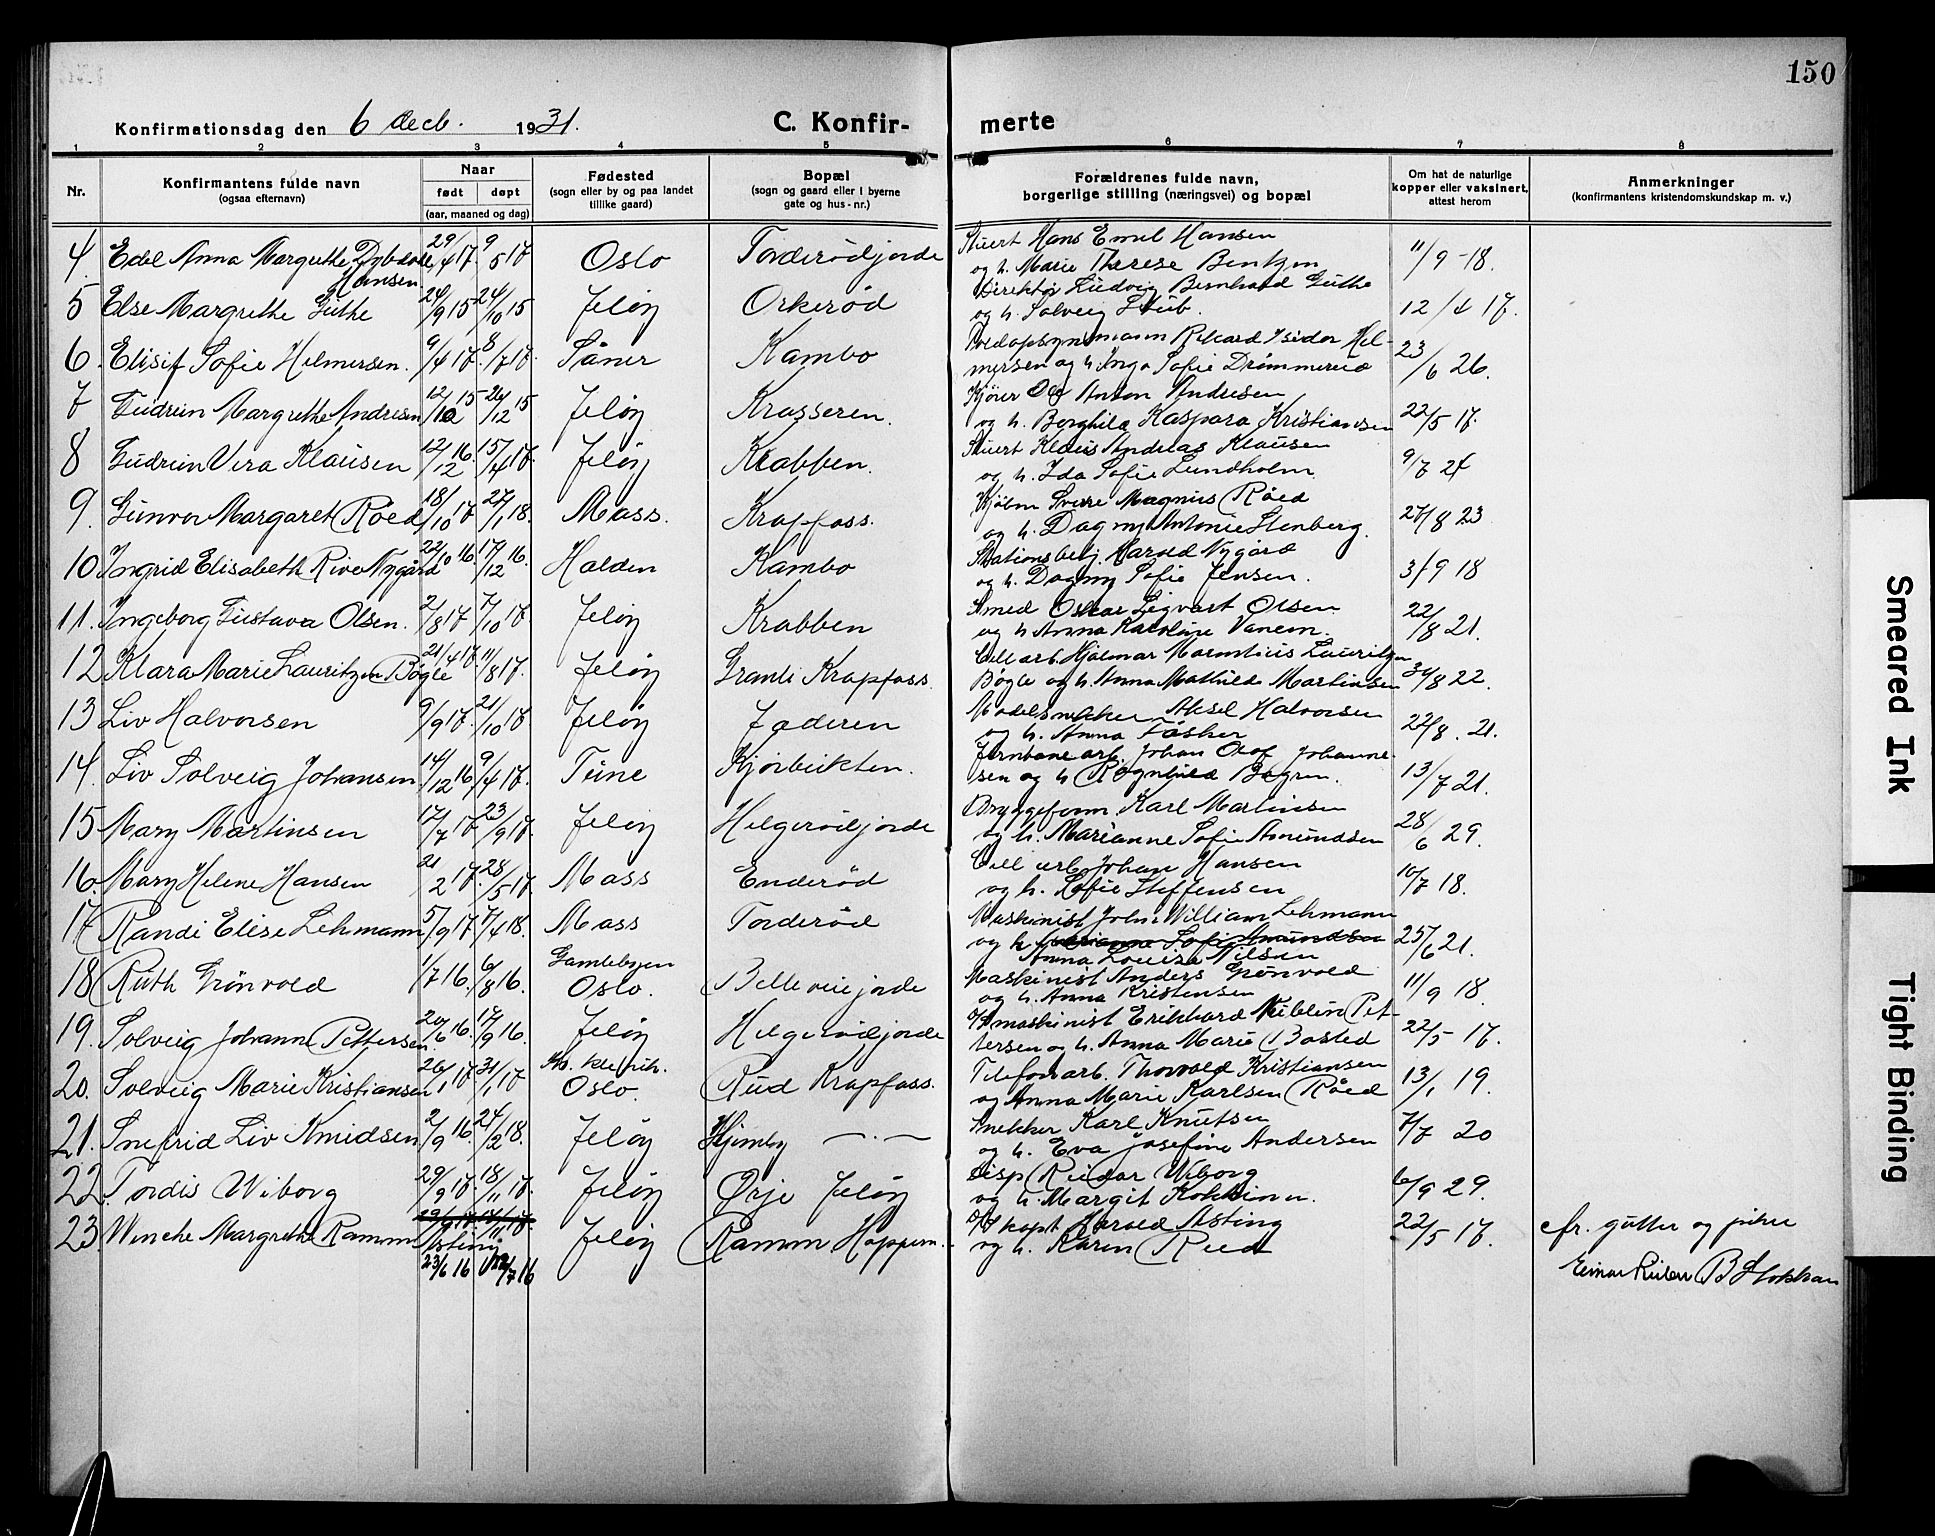 150
Konfirmationsdag den 6 decb. 1931.
C. Konfir-
merte
1 2 3 4 5 6 7 8
Nr.
Konfirmantens fulde navn
(ogsaa efternavn)
Naar
født døpt
(aar, maaned og dag)
Fødested
(sogn eller by og paa landet
tillike gaard)
Bopæl
(sogn og gaard eller i byerne
gate og hus-nr.)
Forældrenes fulde navn,
borgerlige stilling (næringsvei) og bopæl
Om hat de naturlige
kopper eller vaksinert,
attest herom
Anmerkninger
(konfirmantens kristendomskundskap m. v.)
4. Edel Anna Margrethe Hansen 29/4 17 9/5 17 Oslo Torderödjorde Stuert Hans Emil Hansen
og h. Marie Therese Bentzen 11/9-18.
5 Else Margrethe Guthe 24/9 15 24/10 15 Jeløy Orkeröd Direktör Ludvig Bernhard Guthe
og h. Solveig Stub. 12/4 17.
6. Elisif Sofie Helmersen. 9/4 17. 8/7 17. Såner Kambo Rikard Isidor Hel-
mersen og h. Inga Sofie 23/6 26.
7 Gudrun Margrethe Andresen 12/10 15 26/12 15 Jeløy Krasseren. Anton Andresen
og h. Borghild Kaspara Kristiansen 22/5 17.
8 Gudrun Vera Klausen 12/12 16. 15/4 17. Jeløy Krabben. Stuert Klaus Andreas Klausen
og h. Ida Sofie Lundholm. 9/7 24
9. Gunvor Margaret Röed 18/10 17 27/1 18. Moss. Krapfoss. Sverre Magnus Röed
og h. Dagny Antonie Stenberg. 27/8 23
10 Ingrid Elisabeth Rive Nygård 22/10 16 17/12 16. Halden Kambo Stationsbetj. Harald Nygård
og h. Dagny Sofie Jensen. 3/9 18
11. Ingeborg Gustava Olsen. 2/8 17 7/10 17. Jeløy Krabben Smed Oskar Sigvart Olsen
og h Anna Karoline Vanem. 22/8 21.
12 Klara Marie Lauritzen Bøgle 21/4 17. 11/8 17. Jeløy Granli Krapfoss. Cell arb. Hjalmar Lauritzen
Bøgle og h. Anna Mathilde Martinsen 31/8 22.
13 Liv Halvorsen 9/9 17. 21/10 17 Jeløy Jaderen Modelsnekker Aksel Halvorsen
og h. Anna 22/8. 21.
14. Liv Solveig Johansen 14/12 16 9/4 17. Tune Kjörbukten. Jernbanearb. Johan Olof Johanne-
sen og h Ragnhild 13/7 21.
15 Mary Martinsen 17/7 17 23/9 17. Jeløy Helgerödjorde Bryggeform. Karl Martinsen
og h. Marianne Sofie Amundsen 28/6 29.
16. Mary Helene Hansen 21/2 17. 28/5 17 Moss Enderöd Cell arb. Johan Hansen
og h. Sofie Steffensen 10/7 18.
17 Randi Elise Lehmann 5/9 17 7/4 18. Moss Torderöd Maskinist John William Lehmann
og h Marianne Sofie Amundsen 25/6 21.
Anna Louise Nilsen
18 Ruth Grönvold 1/7 16. 6/8 16. Gamlebyen
Oslo. Bellevuejorde Maskinist Anders Grønvold
og h. Anna Kristensen 11/9 18.
19. Solveig Johanne Pettersen 20/6 16. 17/9 16. Jeløy Helgerödjorde maskinist Erikhard Pet-
tersen og h. Anna Marie Bosted 22/5 17.
20. Solveig Marie Kristiansen 26/1 17 31/1 17 Oslo. Rud Krapfoss. Telefonarb. Thorvald Kristiansen
og Anna Marie Karlsen Röed 13/1 19.
21. Snefrid Liv Knudsen 2/9 16. 24/2 18. Jeløy Snekker Karl Knutsen
og h. Eva Josefine Andersen 7/7 20
22 Tordis Wiborg 29/9 17. 18/11 17. Jeløy Orje Jeløy Disp Reidar Wiborg
og h. Margit 6/9 29.
23. Wenche Margrethe Ramm 29/9 17 18/11 17 Jeløy Ramm Harald Asting
Asting og h. Karen 22/5 17. fr. gutter og piker
23/6 16 22/7 16
Einar
Smeared Ink
Tight Binding